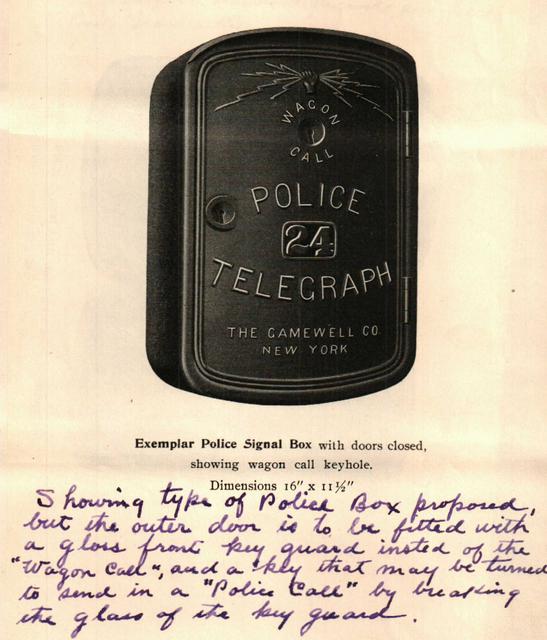 WAGON
CALL
POLICE
24
TELEGRAPH
THE GAMEWELL CO.
NEW YORK
Exemplar Police Signal Box with doors closed,
showing wagon call keyhole.
Dimensions 16" x 11½"
Showing type of Police Box proposed,
but the outer door is to be fitted with
a glass front key guard insted of the
"Wagon Call", and a key that may be turned
to send in a "Police Call" by breaking
the glass of the key guard.